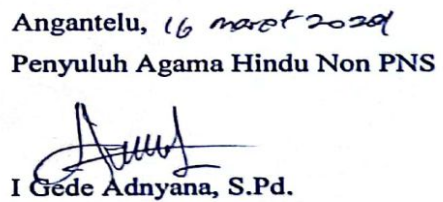 Angantelu, 16 maret 2021
Penyuluh Agama Hindu Non PNS
I Gede Adnyana, S.Pd.